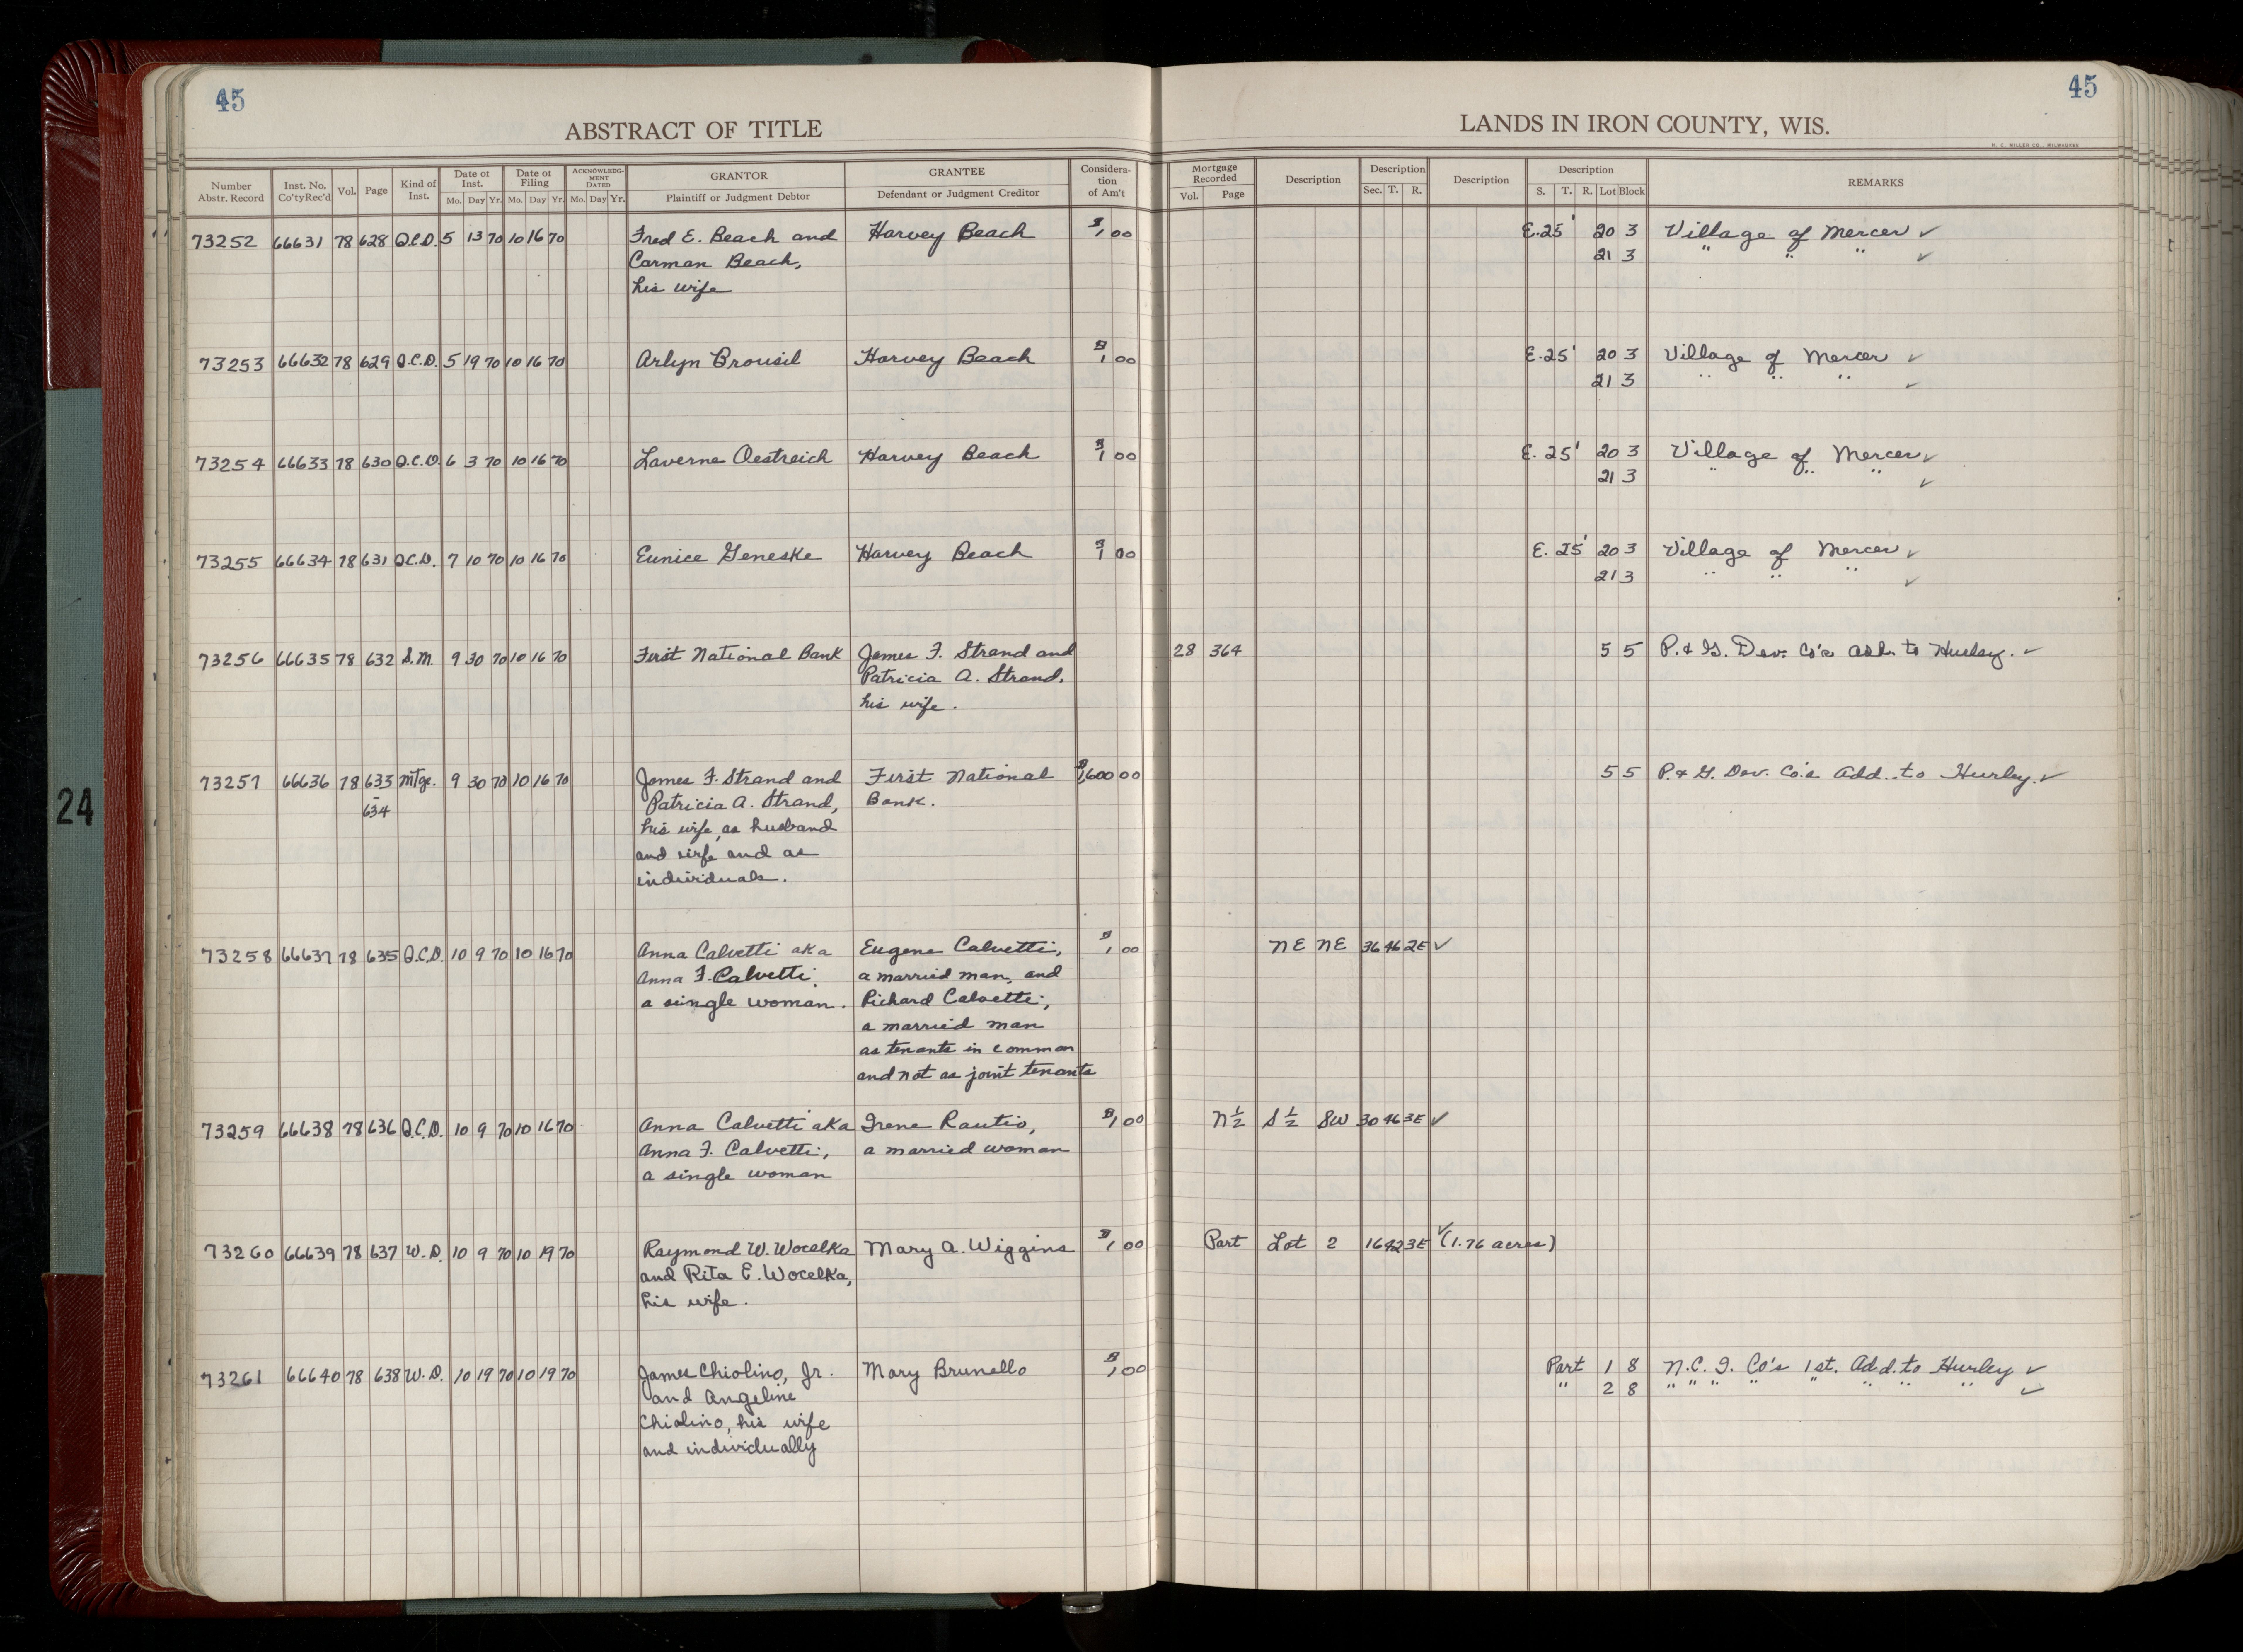 45
45
ABSTRACT OF TITLE
LANDS IN IRON COUNTY, WIS.
H. C. MILLER CO., MILWAUKEE
Number Abstr. Record
Inst. No. Co'ty Rec'd
Vol.
Page
Kind of Inst.
Date of Inst.
Mo. Day Yr.
Date of Filing
Mo. Day Yr.
ACKNOWLEDGMENT DATED
Mo. Day Yr.
GRANTOR
Plaintiff or Judgment Debtor
GRANTEE
Defendant or Judgment Creditor
Consideration of Am't
Mortgage Recorded
Vol. Page
Description
Description
Sec. T. R.
Description
Description
S. T. R. Lot Block
REMARKS
73252 66631 78 628 Q.C.D. 5 13 70 10 16 70 Fred E. Beach and Harvey Beach $1,00 E.25' 20 3 Village of Mercer ✓
Carman Beach, 21 3 " " " ✓
his wife
73253 66632 78 629 Q.C.D. 5 19 70 10 16 70 Arlyn Brousil Harvey Beach $1 00 E.25' 20 3 Village of Mercer ✓
21 3 " " " ✓
73254 66633 78 630 Q.C.D. 6 3 70 10 16 70 Laverne Oestreich Harvey Beach $1 00 E. 25' 20 3 Village of Mercer ✓
21 3 " " " ✓
73255 66634 78 631 Q.C.D. 7 10 70 10 16 70 Eunice Geneske Harvey Beach $1 00 E. 25' 20 3 Village of Mercer ✓
21 3 " " " ✓
73256 66635 78 632 S.M. 9 30 70 10 16 70 First National Bank James F. Strand and 28 364 5 5 P. & G. Dev. Co's Add. to Hurley. ✓
Patricia A. Strand,
his wife.
73257 66636 78 633 Mtge. 9 30 70 10 16 70 James F. Strand and First National $1,600 00 5 5 P. & G. Dev. Co.'s Add. to Hurley. ✓
-
634 Patricia A. Strand, Bank.
his wife, as husband
and wife and as
individuals.
73258 66637 78 635 Q.C.D. 10 9 70 10 16 70 Anna Calvetti aka Eugene Calvetti, $1,00 NE NE 36 46 2E ✓
Anna F. Calvetti, a married man, and
a single woman. Richard Calvetti,
a married man
as tenants in common
and not as joint tenants
73259 66638 78 636 Q.C.D. 10 9 70 10 16 70 Anna Calvetti aka Irene Rautio, $1,00 N½ S½ SW 30 46 3E ✓
Anna F. Calvetti, a married woman
a single woman
73260 66639 78 637 W.D. 10 9 70 10 19 70 Raymond W. Wocelka Mary A. Wiggins $1,00 Part Lot 2 16 42 3E ✓ (1.76 acres)
and Rita E. Wocelka,
his wife.
73261 66640 78 638 W.D. 10 19 70 10 19 70 James Chiolino, Jr. Mary Brunello $1,00 Part 1 8 N.C.I. Co's 1st. Add. to Hurley ✓
and Angeline " 2 8 " " " " " " " " ✓
Chiolino, his wife
and individually
24